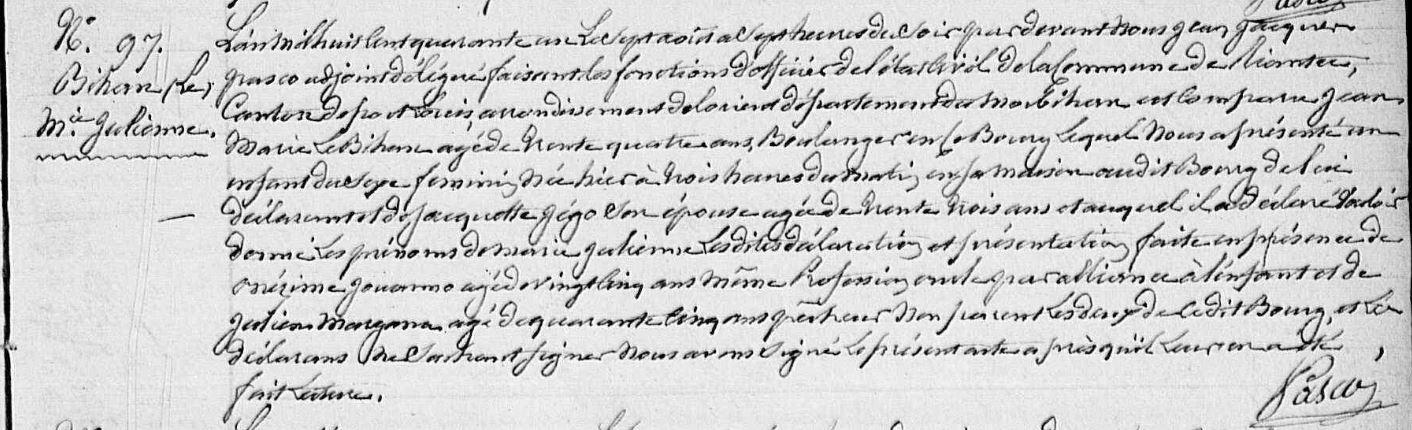 N.° 97.
Bihan (Le)
M.ie Julienne.
L'an mil huit cent quarante un Le sept août a sept heures du soir par devant Nous Jean Jacques
pasco adjoint délégué faisant les fonctions d'officier de l'état Civil de la Commune de Riantec,
Canton de port Louis, arrondissement de lorient département du Morbihan est Comparu Jean
Marie Le Bihan agé de trente quatre ans, Boulanger en ce Bourg Lequel Nous a présenté un
enfant du sexe feminin Née hier à trois heures du matin en sa maison au dit Bourg de lui
déclarant et de Jacquette Jégo son épouse agée de trente trois ans et auquel il a déclaré vouloir
donner les prénoms de Marie Julienne Les dites déclaration et présentation faite en présence de
onézime Gouarmo agé de vingt cinq ans même Profession oncle par alliance à l'enfant et de
Julien Margana agé de quarante cinq ans pêcheur Non parent Les deux de Ce dit Bourg, et Les
déclarans Ne Sachant signer Nous avons signé Le présent acte après qu'il Leur en a été
fait Lecture.
Pasco